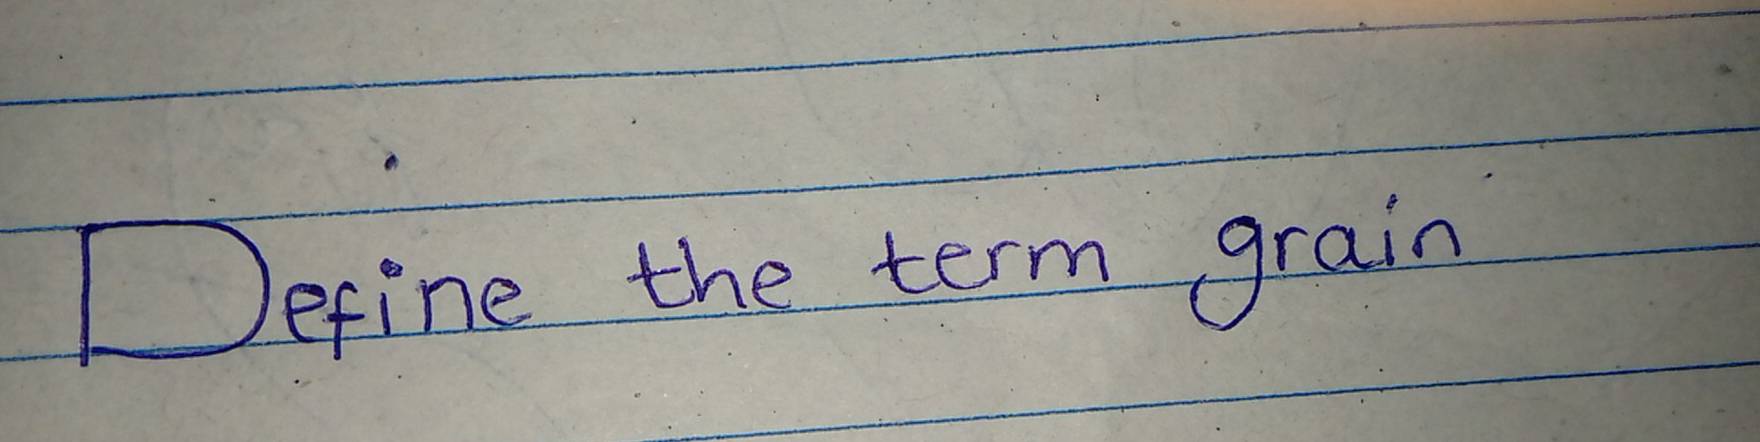 Define the term grain